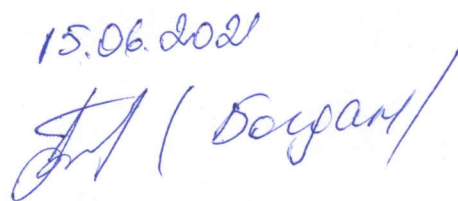 15.06.2021
( Богдан /